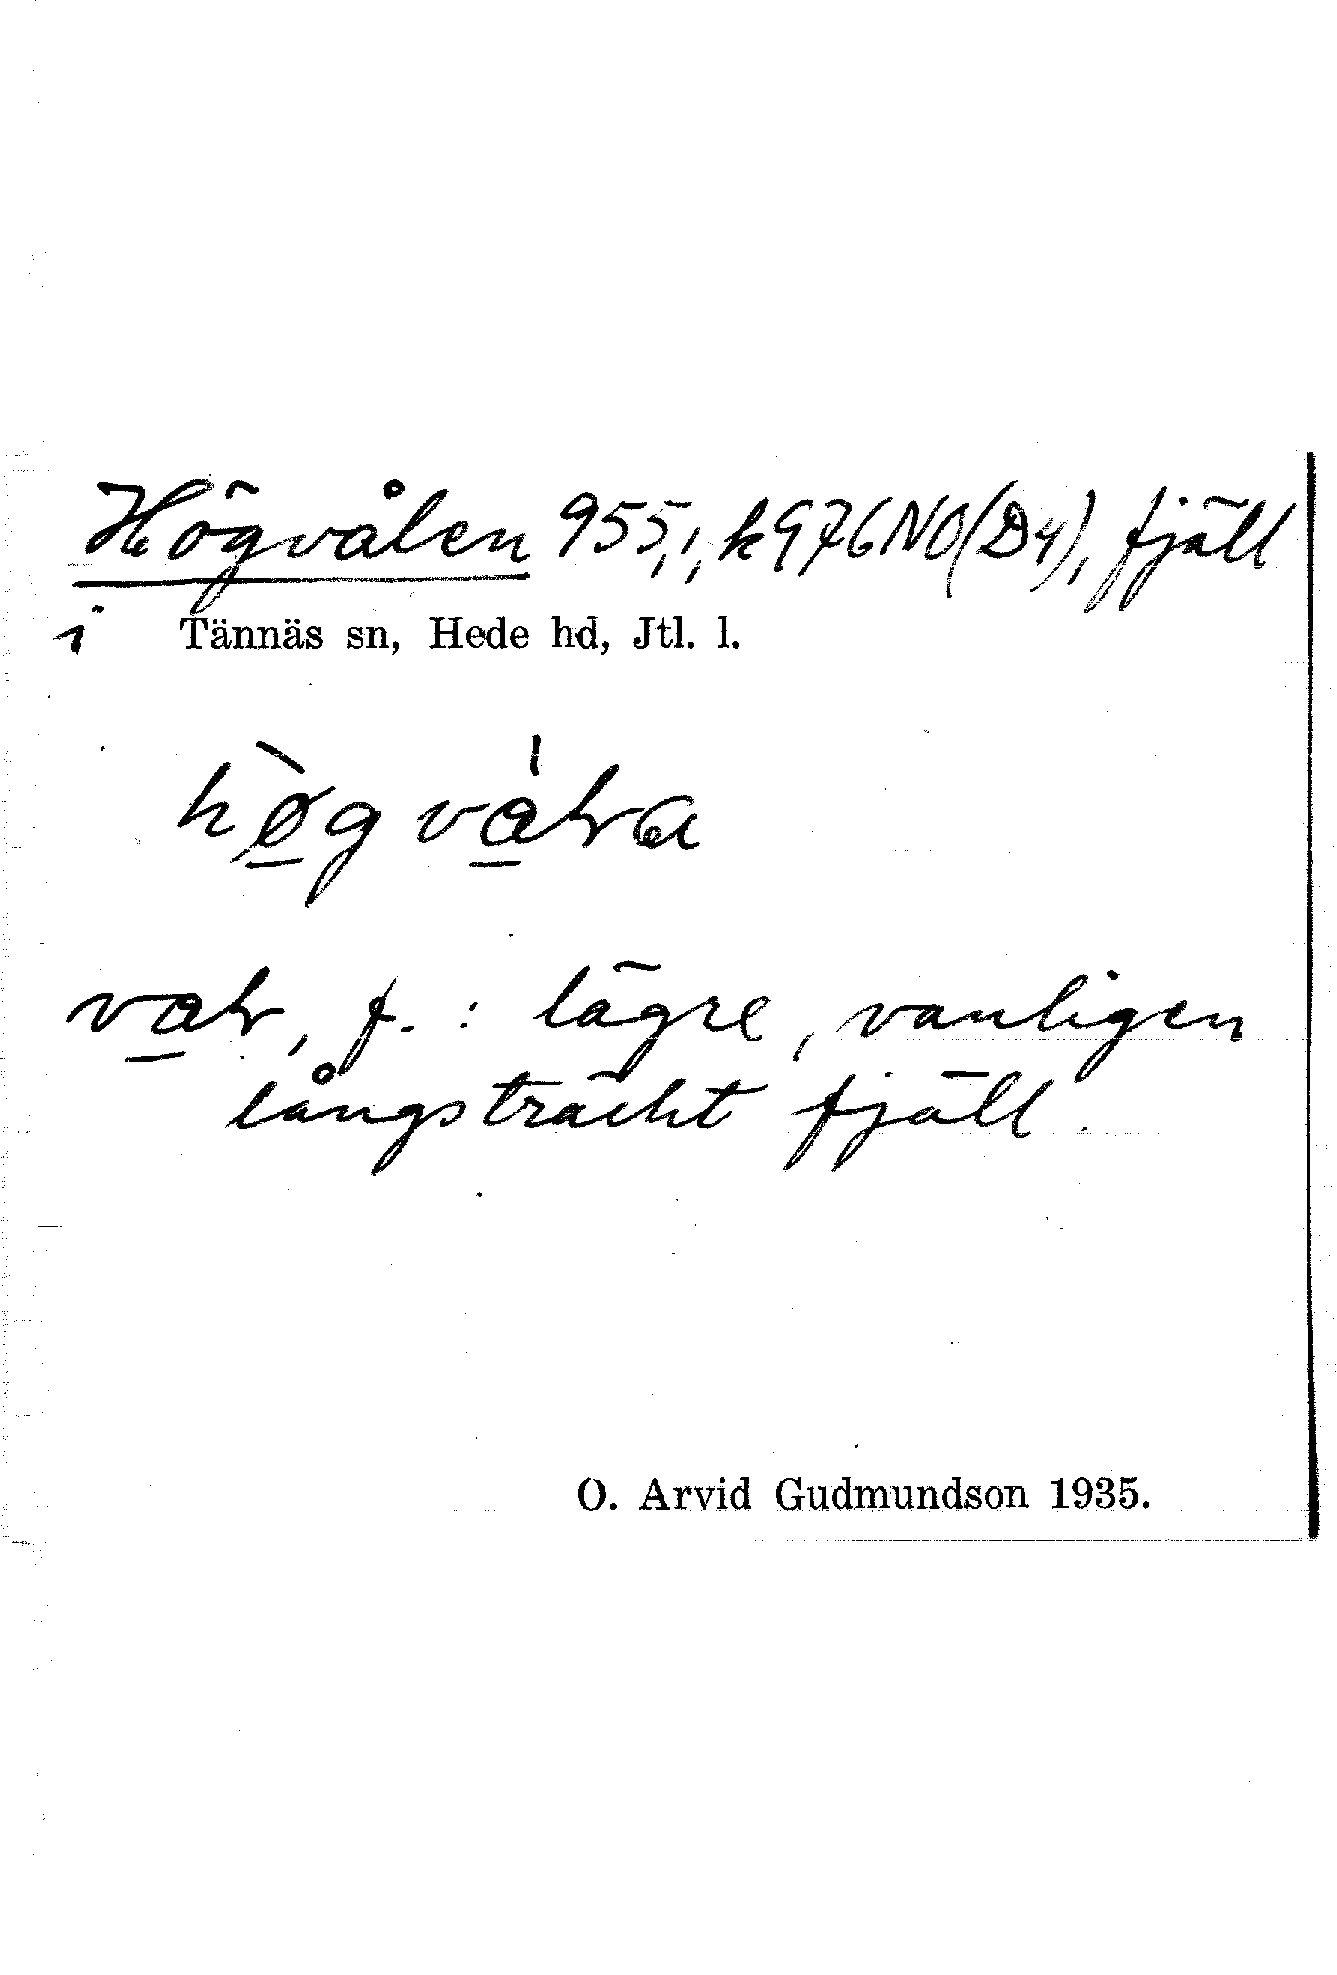 Högvålen 955,1, k976NO(D4), fjäll
i Tännäs sn, Hede hd, Jtl. l.
hø̠̀gva̠̍lɽɷ
va̠ɽ, f. : lägre, vanligen
långsträckt fjäll.
O. Arvid Gudmundson 1935.